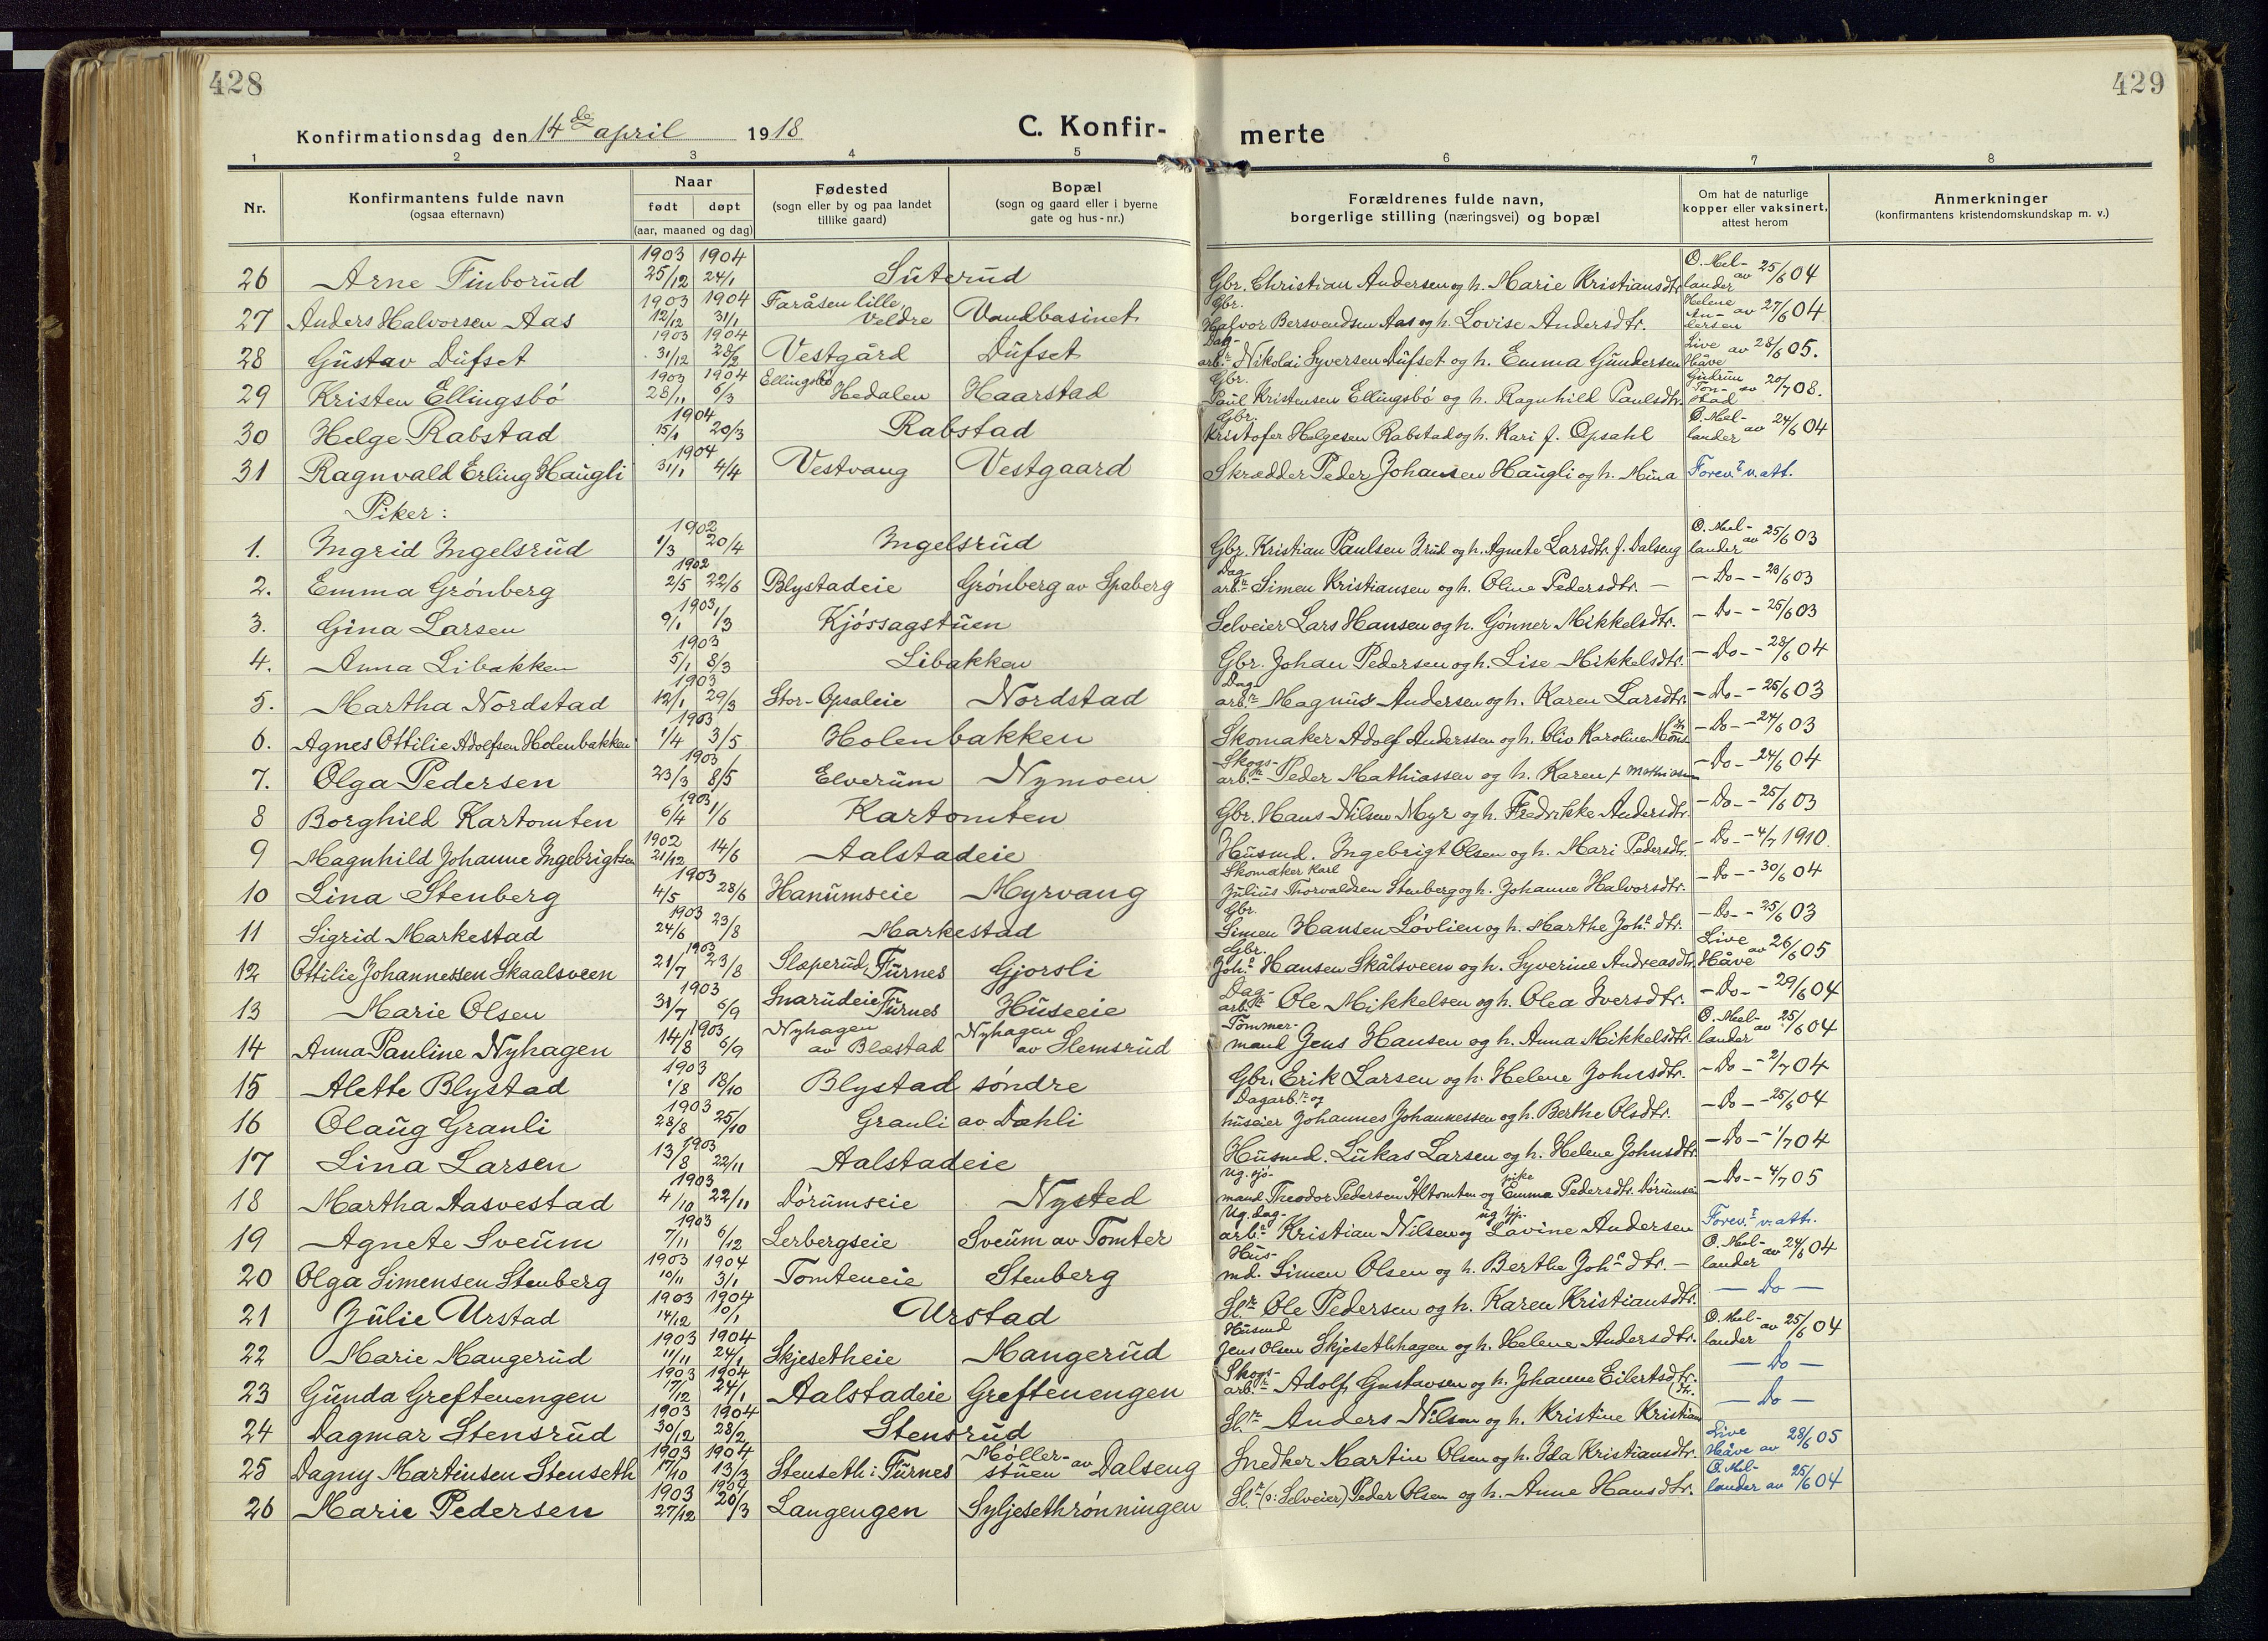 428
429
Konfirmationsdag den 14de april 1918
C. Konfir-
merte
1 2 3 4 5 6 7 8
Nr.
Konfirmantens fulde navn
(ogsaa efternavn)
Naar
født døpt
(aar, maaned og dag)
Fødested
(sogn eller by og paa landet
tillike gaard)
Bopæl
(sogn og gaard eller i byerne
gate og hus-nr.)
Forældrenes fulde navn,
borgerlige stilling (næringsvei) og bopæl
Om hat de naturlige
kopper eller vaksinert,
attest herom
Anmerkninger
(konfirmantens kristendomskundskap m. v.)
26 Arne Finborud 1903 25/12 1904 24/1 Suterud Gbr. Christian Andersen og h. Marie Kristiansdtr. O. Mel-lander av 25/6 04
27 Anders Halvorsen Aas 1903 12/12 1904 31/1 Faråsen lille, Veldre Vandbasinet Gbr. Halvor Bersvendsen Aas og h. Lovise Andersdtr. Helene An-dersen av 27/6 04
28 Gustav Dufset 1903 31/12 1904 28/2 Vestgård Dufset Dag-arb.r Nikolai Syversen Dufset og h. Emma Gundersen Live Håve av 28/6 05.
29 Kristen Ellingsbó 1903 28/11 1904 6/3 Ellingsbó Hedalen Haarstad Gbr. Paul Kristensen Ellingsbó og h. Ragnhild Paulsdtr. Gudrun Ton-stad av 20/7 08.
30 Helge Rabstad 1904 15/1 20/3 Rabstad Gbr. Kristofer Helgesen Rabstad og h. Kari f. Opsahl O. Mel-lander av 24/6 04
31 Ragnvald Erling Haugli 1904 31/1 4/4 Vestvang Vestgaard Skrædder Peder Johansen Haugli og h. Mina Forev.t v. att.
Piker:
1. Ingrid Ingelsrud 1902 1/3 20/4 Ingelsrud Gbr. Kristian Paulsen Irud og h. Agnete Larsdtr. f. Dalseng O. Mel-lander av 25/6 03
2. Emma Grónberg 1902 2/5 22/6 Blystadeie Grónberg av Spaberg Dag-arb.r Simen Kristiansen og h. Oline Pedersdtr. — – Do – – 23/6 03
3. Gina Larsen 1903 9/1 1/3 Kjóssagstuen Selveier Lars Hansen og h. Gónner Mikkelsdtr. – Do – – 25/6 03
4. Anna Libakken 1903 5/1 8/3 Libakken Gbr. Johan Pedersen og h. Lise Mikkelsdtr. – Do – – 28/6 04
5. Martha Nordstad 1903 12/1 29/3 Stor-Opsaleie Nordstad Dag-arb.r Magnus Andersen og h. Karen Larsdtr. – Do – – 25/6 03
6. Agnes Ottilie Adolfsen Holenbakken 1903 1/4 3/5 Holenbakken Skomaker Adolf Anderssen og h. Oliv Karoline – Do – – 24/6 03
7. Olga Pedersen 1903 23/3 8/5 Elverum Nymoen Skogs-arb.r Peder Mathiassen og h. Karen f. Mathiasen – Do – – 24/6 04
8 Borghild Kartomten 1903 6/4 1/6 Kartomten Gbr. Hans Nilsen Myr og h. Fredrikke Andersdtr. – Do – – 25/6 03
9 Magnhild Johanne Ingebrigtsen 1902 21/12 14/6 Aalstadeie Husmd. Ingebrigt Olsen og h. Mari Pedersdtr. – Do – – 4/7 1910.
10 Lina Stenberg 1903 4/5 28/6 Hanumseie Myrvang Skomaker Karl Julius Thorvaldsen Stenberg og h. Johanne Halvorsdtr. – Do – – 30/6 04
11 Sigrid Markestad 1903 24/6 23/8 Markestad Gbr. Simen Hansen Lóvlien og h. Marthe Joh.s dtr. – Do – – 25/6 03
12 Ottilie Johannessen Skaalsveen 1903 21/7 23/8 Slaperud, Furnes Gjorsli Gbr. Joh.s Hansen Skålsveen og h. Syverine Andreasdtr. Live Håve av 26/6 05
13 Marie Olsen 1903 31/7 6/9 Snarudeie Furnes Huseeie Dag-arb.r Ole Mikkelsen og h. Olea Iversdtr. – Do – – 29/6 04
14 Anna Pauline Nyhagen 1903 14/8 6/9 Nyhagen av Blæstad Nyhagen av Slemsrud Tømmer-mand Jens Hansen og h. Anna Mikkelsdtr. O. Mel-lander av 25/6 04
15 Alette Blystad 1903 1/8 18/10 Blystad søndre Gbr. Erik Larsen og h. Helene Johnsdtr. – Do – – 2/7 04
16 Olaug Granli 1903 28/8 25/10 Granli av Dæhli Dagarb.r og huseier Johannes Johannessen og h. Berthe Olsdtr. – Do – – 25/6 04
17 Lina Larsen 1903 13/8 22/11 Aalstadeie Husmd. Lukas Larsen og h. Helene Johnsdtr. – Do – – 1/7 04
18 Martha Aasvestad 1903 4/10 22/11 Dórumseie Nysted Ug. sjó-mand Theodor Pedersen Åltomten og pike Emma Pedersdtr. Dórumseie – Do – – 4/7 05
19 Agnete Sveum 1903 7/11 6/12 Lerbergseie Sveum av Tomter Ug. dag-arb.r Kristian Nilsen og ug. tjp. Lavine Andersen Forev.t v. att.
20 Olga Simensen Stenberg 1903 10/11 1904 3/1 Tomteneie Stenberg Hus-md. Simen Olsen og h. Berthe Joh.s dtr. – O. Mel-lander av 24/6 04
21 Julie Urstad 1903 14/12 1904 10/1 Urstad Sl.r Ole Pedersen og h. Karen Kristiansdtr. – Do –
22 Marie Mangerud 1903 11/11 1904 24/1 Skjesetheie Mangerud Husmd Jens Olsen Skjesethhagen og h. Helene Andersdtr. O. Mel-lander av 25/6 04
23 Gunda Greftenengen 1903 7/12 1904 24/1 Aalstadeie Greftenengen Skogs-arb.r Adolf Gustavsen og h. Johanne Eilertsdtr. – Do –
24 Dagmar Stensrud 1903 30/12 1904 28/2 Stensrud Sl.r Anders Nilsen og h. Kristine Kristians dtr. – Do –
25 Dagny Martinsen Stenseth 1903 17/10 1904 13/3 Stenseth i Furnes Møller-stuen av Dalseng Snedker Martin Olsen og h. Ida Kristiansdtr. Live Håve av 28/6 05
26 Marie Pedersen 1903 27/12 1904 20/3 Langengen Syljesethrónningen Sl.r (ɔ: Selveier) Peder Olsen og h. Anne Hansdtr. O. Mel-lander av 25/6 04